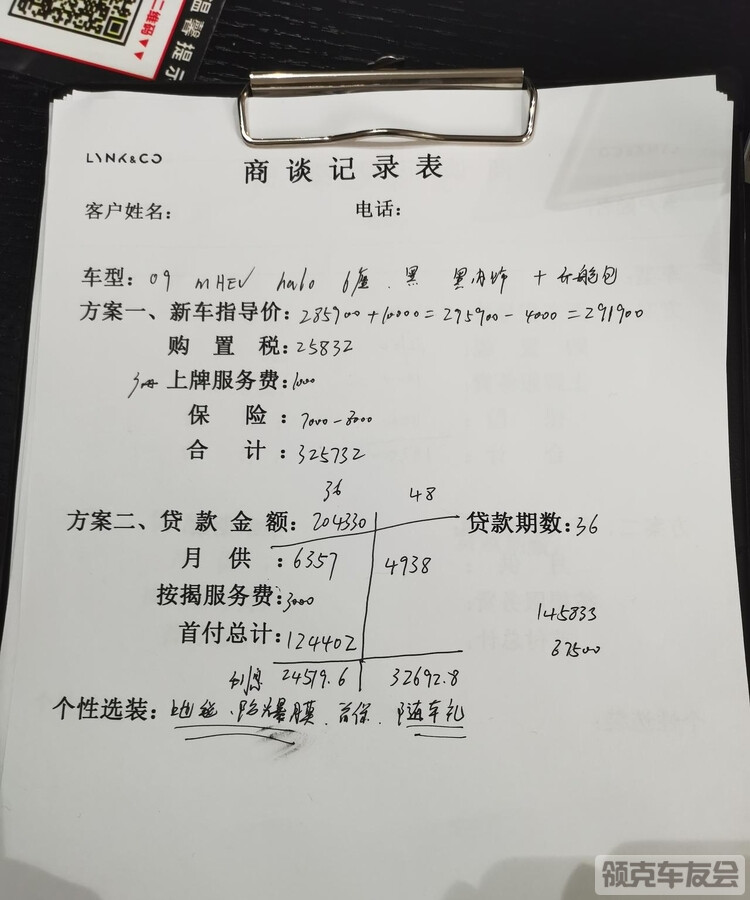 二维码▼▼
温馨提示
LYNK&CO
商谈记录表
客户姓名: 电话:
车型: 09 MHEV halo 6座 黑 黑内饰 +
方案一、新车指导价: 285900+10000=295900-4000=291900
购置税: 25832
上牌服务费: 1000
保险: 7000-8000
合计: 325732
36 48
方案二、贷款金额: 204330 贷款期数: 36
月供: 6357 4938
按揭服务费: 3000
145833
首付总计: 124402
37500
利息 24519.6 32692.8
个性选装: 地毯、防爆膜、首保、随车礼
领克车友会